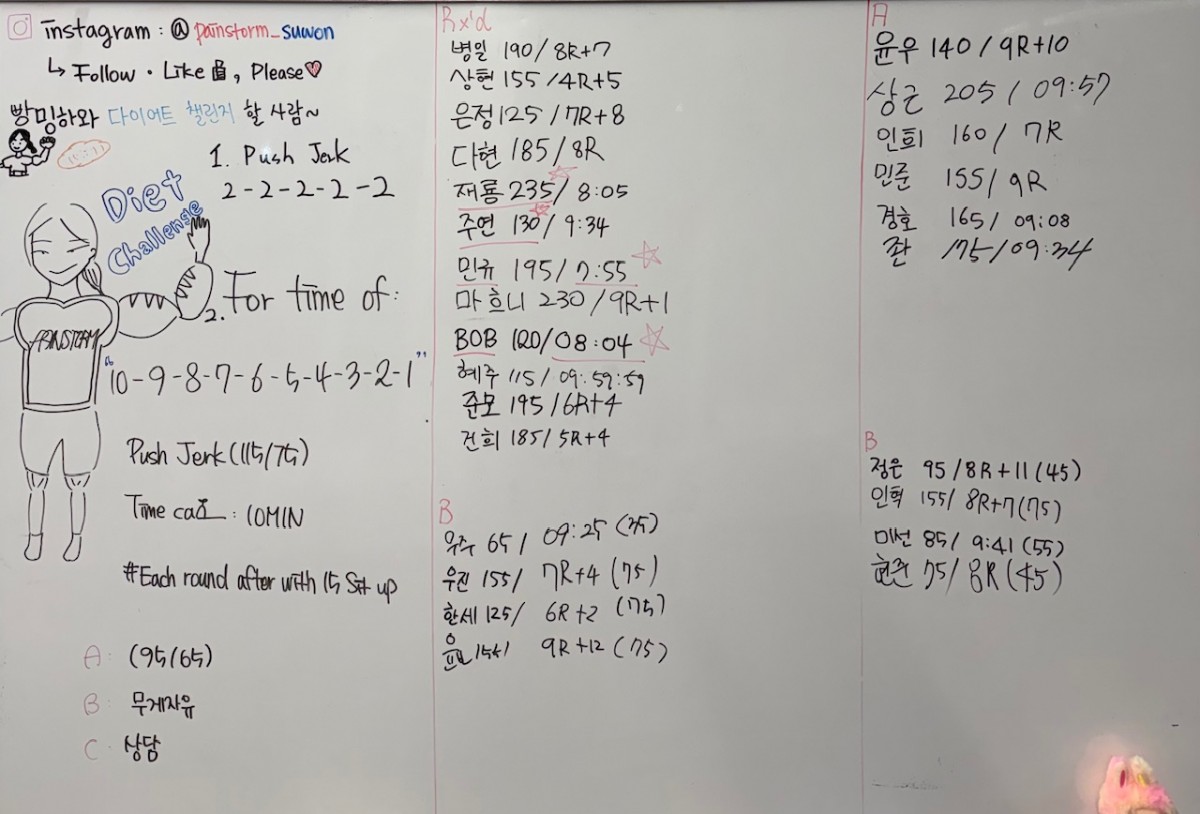 instagram : @painstorm_suwon
↳ Follow · Like , Please♡
빵밍하와 다이어트 챌린지 할 사람~
Diet
Challenge
PAINSTORM
1. Push Jerk
2-2-2-2-2
2. For time of:
"10-9-8-7-6-5-4-3-2-1"
Push Jerk (115/75)
Time : 10MIN
#Each round after with 15 Sit up
A: (95/65)
B: 무게자유
C: 상담
Rx'd
병일 190/8R+7
상현 155/4R+5
은정 125/7R+8
다현 185/8R
재룡 235/8:05
주연 130/9:34
민규 195/7:55
마흐니 230/9R+1
BOB 120/08:04
혜주 115/09:59:59
준모 195/6R+4
건희 185/5R+4
B
우주 65/09:25 (35)
우진 155/7R+4 (75)
한세 125/6R+2 (75)
9R+12 (75)
A
윤우 140/9R+10
상근 205/09:57
인희 160/7R
민준 155/9R
경호 165/09:08
좐 175/09:34
B
정은 95/8R+11(45)
인혁 155/8R+7(75)
미선 85/9:41(55)
75/8R(45)